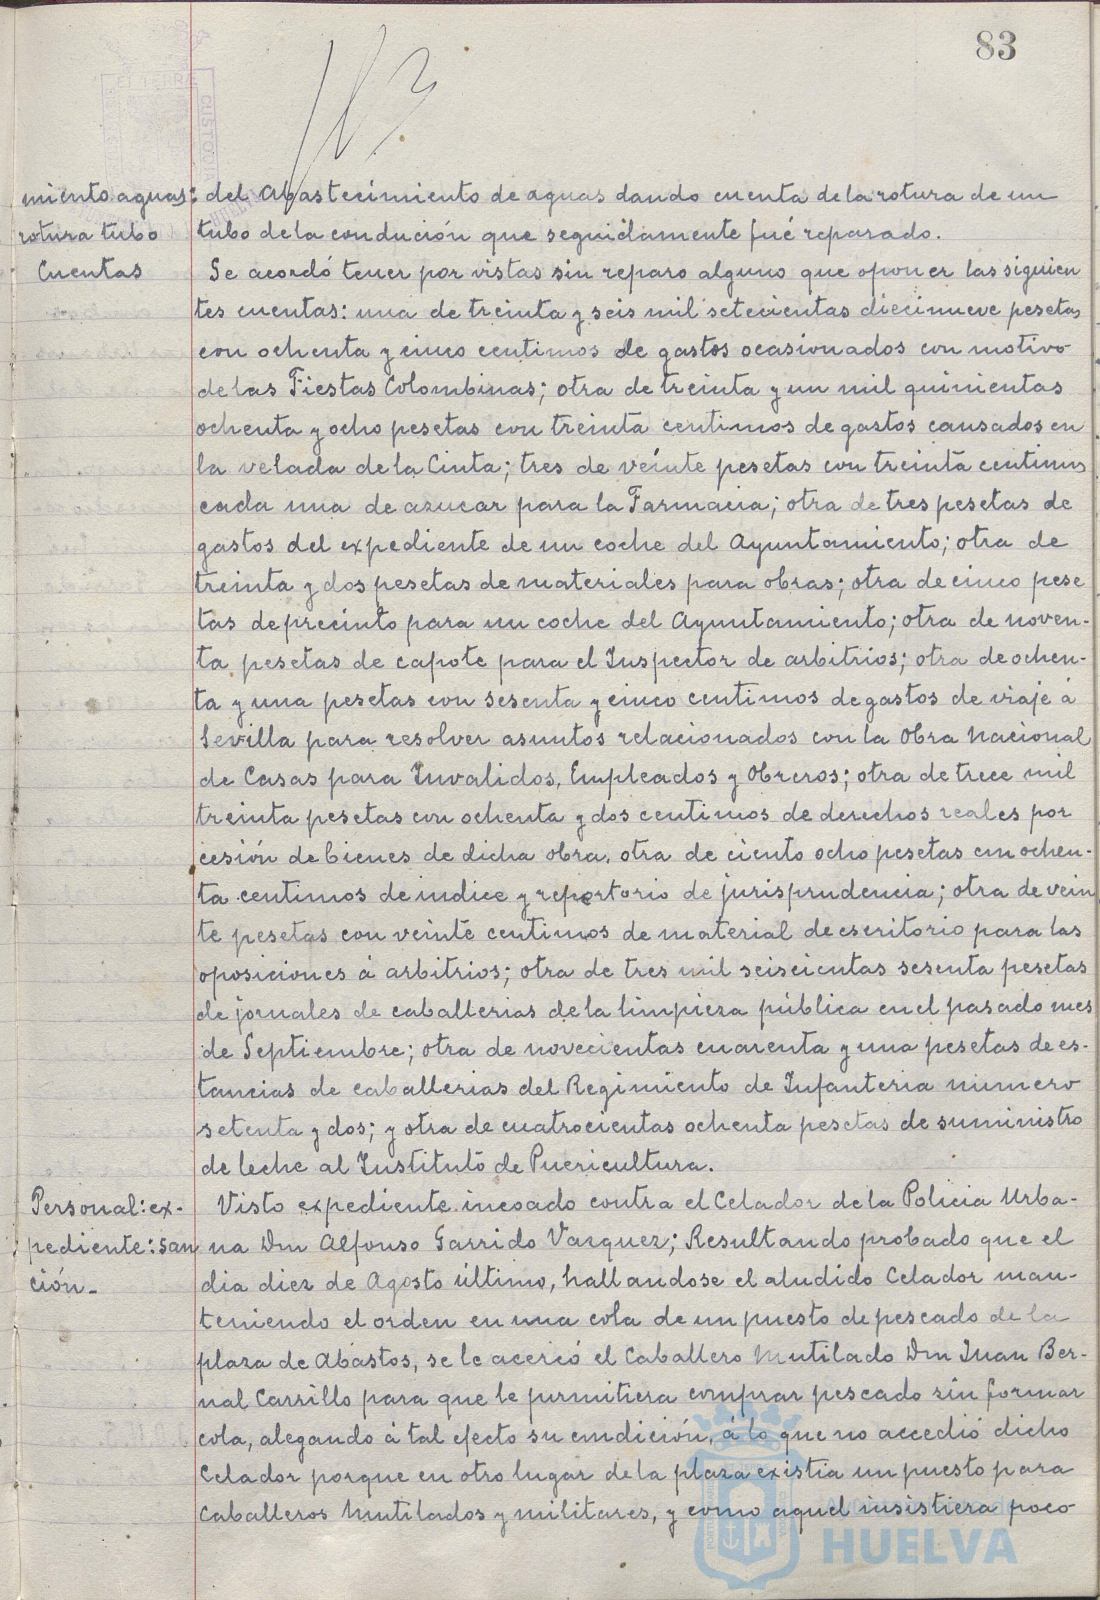 83
miento aguas: del Abastecimiento de aguas dando cuenta de la rotura de un
rotura tubo tubo de la condución que seguidamente fué reparado.
Cuentas Se acordó tener por vistas sin reparo alguno que oponer las siguien
tes cuentas: una de treinta y seis mil setecientas diecinueve pesetas
con ochenta y cinco centimos de gastos ocasionados con motivo
de las Fiestas Colombinas; otra de treinta y un mil quinientas
ochenta y ocho pesetas con treinta centimos de gastos causados en
la velada de la Cinta; tres de veinte pesetas con treinta centimos
cada una de azucar para la Farmacia; otra de tres pesetas de
gastos del expediente de un coche del Ayuntamiento; otra de
treinta y dos pesetas de materiales para obras; otra de cinco pese
tas de precinto para un coche del Ayuntamiento; otra de noven-
ta pesetas de capote para el Inspector de arbitrios; otra de ochen-
ta y una pesetas con sesenta y cinco centimos de gastos de viaje á
Sevilla para resolver asuntos relacionados con la Obra Nacional
de Casas para Invalidos, Empleados y Obreros; otra de trece mil
treinta pesetas con ochenta y dos centimos de derechos reales por
cesión de bienes de dicha obra, otra de ciento ocho pesetas con ochen-
ta centimos de indice y repertorio de jurisprudencia; otra de vein
te pesetas con veinte centimos de material de escritorio para las
oposiciones á arbitrios; otra de tres mil seiscientas sesenta pesetas
de jornales de caballerias de la limpieza pública en el pasado mes
de Septiembre; otra de novecientas cuarenta y una pesetas de es-
tancias de caballerias del Regimiento de Infanteria numero
setenta y dos; y otra de cuatrocientas ochenta pesetas de suministro
de leche al Instituto de Puericultura.
Personal: ex- Visto expediente incoado contra el Celador de la Policia Urba-
pediente: san na Don Alfonso Garrido Vazquez; Resultando probado que el
ción- dia diez de Agosto último, hallandose el aludido Celador man-
teniendo el orden en una cola de un puesto de pescado de la
plaza de Abastos, se le acercó el Caballero Mutilado Don Juan Ber-
nal Carrillo para que le permitiera comprar pescado sin formar
cola, alegando á tal efecto su condición, á lo que no accedió dicho
Celador porque en otro lugar de la plaza existia un puesto para
Caballeros Mutilados y militares, y como aquel insistiera poco
HUELVA